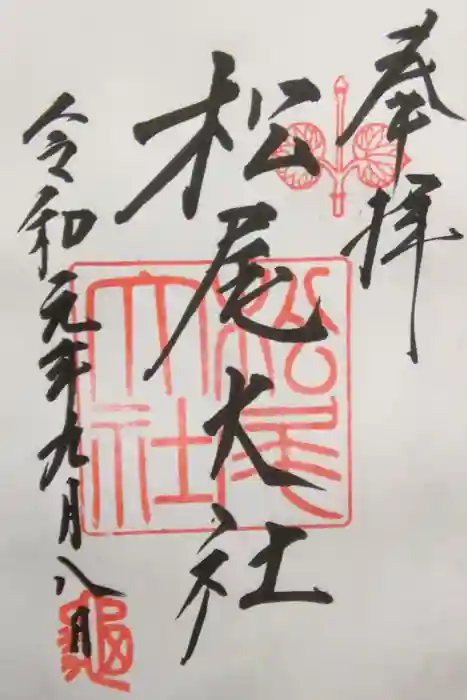 奉拝
松尾大社
令和元年九月八日
松尾大社